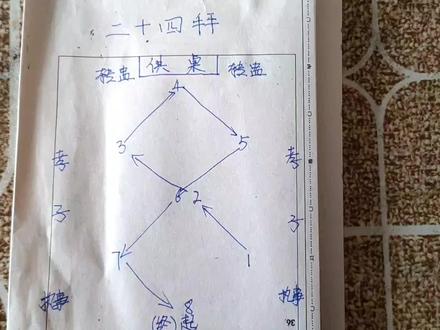 二十四拜
供桌
4
3 5
孝子 孝子
6 2
7 1
执事 执事
8
(终) 起
36